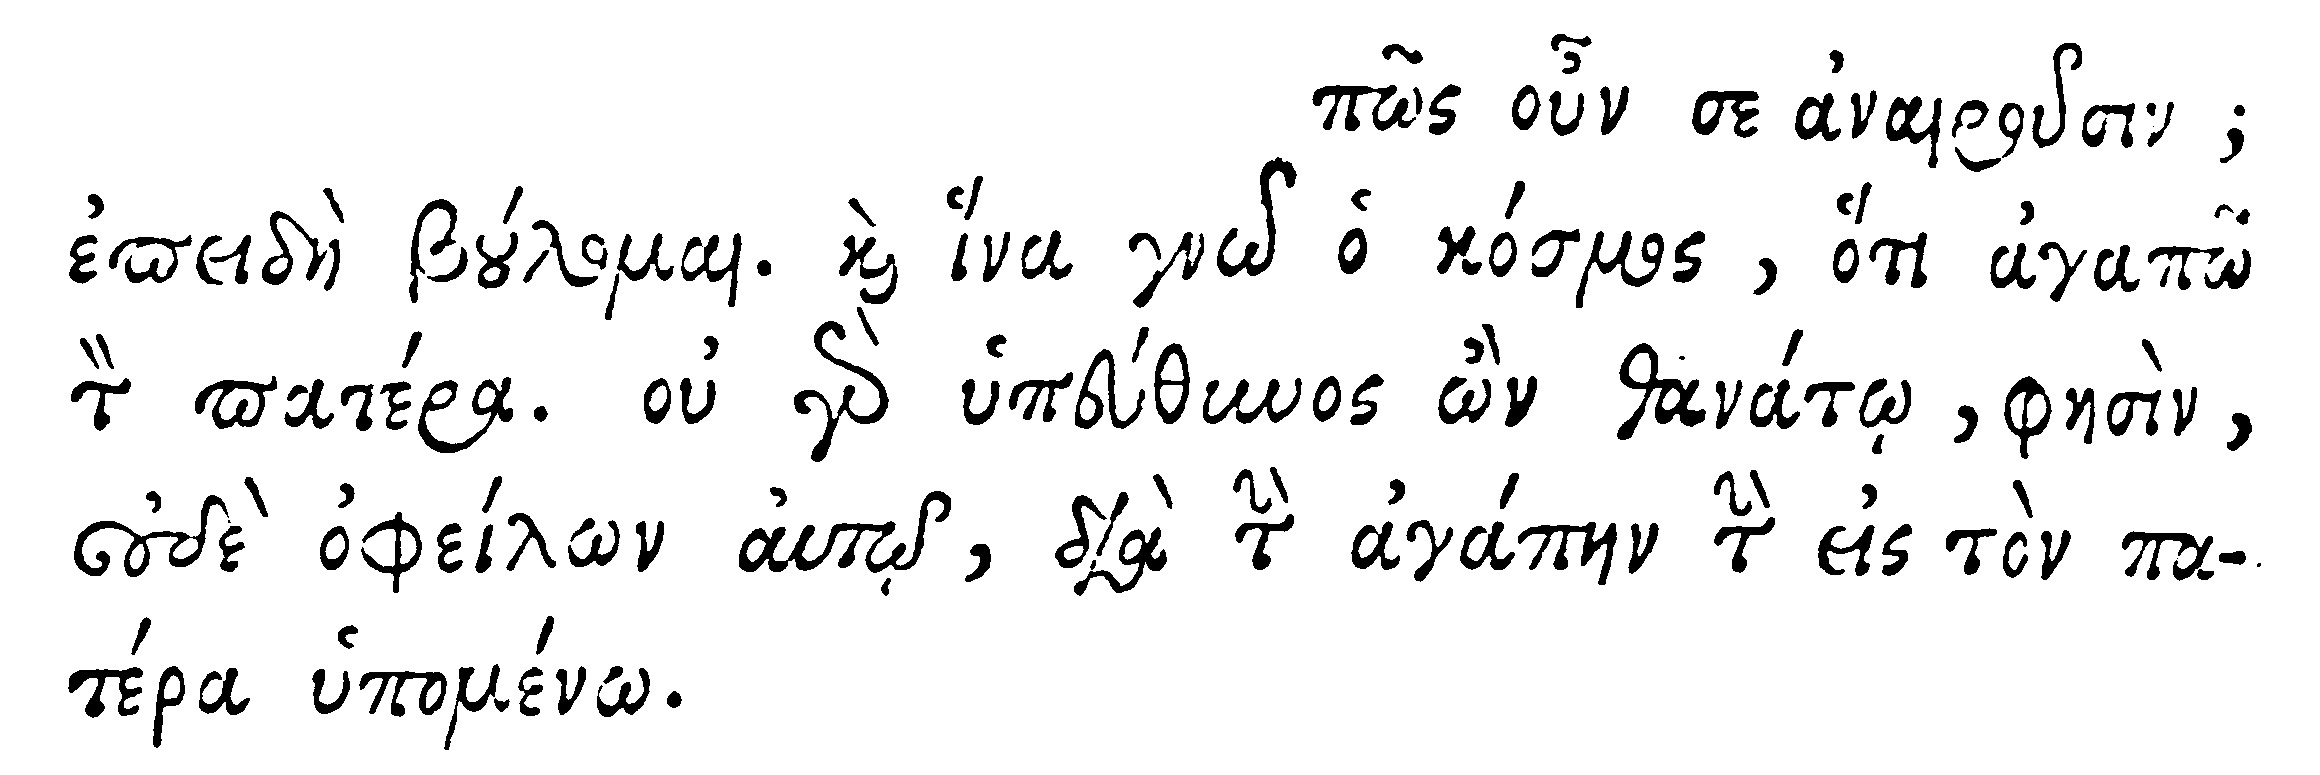 πῶς οὖν σε ἀναιροῦσιν ;
ἐπειδὴ βούλομαι. καὶ ἵνα γνῷ ὁ κόσμος, ὅτι ἀγαπῶ
τὸν πατέρα. οὐ γὰρ ὑπεύθυνος ὢν θανάτῳ, φησὶν,
οὐδὲ ὀφείλων ἀυτῷ, διὰ τὴν ἀγάπην τὴν εἰς τὸν πα-
τέρα ὑπομένω.